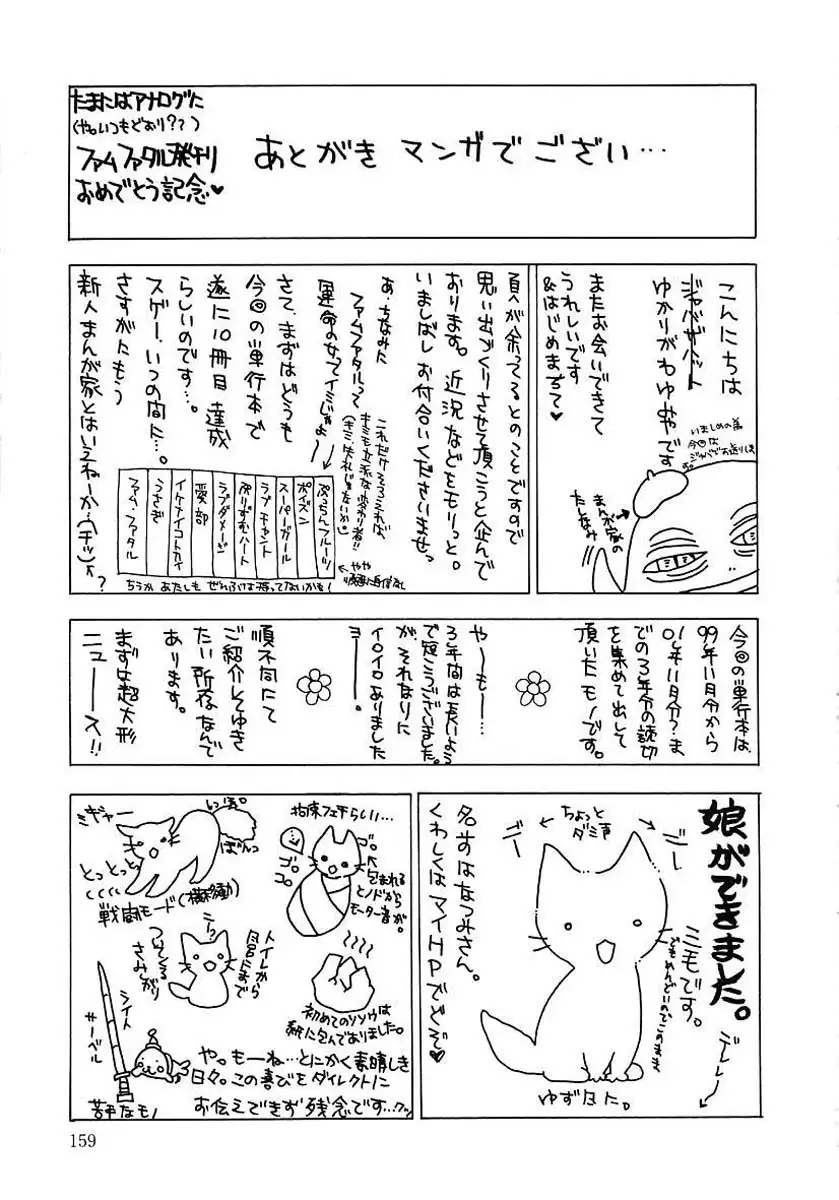 たまにはアナログに
(やっいつもどおり??)
ファムファタル発刊
おめでとう記念♥
あとがき マンガでござい…
こんにちは
ジャバザハット
ゆかりがわゆみやです
いましめの為
今回は
ジャバでお送りします。
またお会いできて
うれしいです
&はじめまちて♥
まんが家の
たしなみ
頁が余ってるとのことですので
思い出づくりさせて頂こうと企んで
おります。近況などをモリっと。
いましばしお付合いくださいませっ
あ、ちなみに
ファムファタルって
運命の女ってイミじゃよ〜
これだけそろえれば、
キミも立派な変わり者!!
(キミ・失礼じゃないか)
さて、まずはどうも
今回の単行本で
遂に10冊目達成
らしいのです…。
スゲー、いつの間に…。
さすがにもう
新人まんが家とはいえねーか…(チッ)
?
ぷっちんフルーツ
ポイズン
スーパーガール
ラブチャント
ぷりずむハート
ラブダメージ
愛部
イケナイコトカイ
うさぎ
ファム・ファタル
←やや
順番に自信なし
ちうか あたしも ぜんぶは持ってないかも!
今回の単行本は、
99年11月分から
01年11月分?ま
での3年分の読切
を集めて出して
頂いたモノです。
や〜も〜…
3年間は長いよう
で短こうございました。
が、それなりに
イロイロありました
ヨー。
順不同にて
ご紹介してゆき
たい所存なんで
あります。
まずは超大形
ニュース!!
娘ができました。
三毛です。
でもめんどいのでこのまま
デレレ〜
ちょっと
ダミ声
ニー
ゴー
名まはなつみさん。
くわしくはマイHPでどぞ♥
ゆずひに。
拘束フェチらしい…
ゴロ
ゴロ
包まれる
とノドから
モーター音が。
ミギャー
しっぽ。
ぼんっ
とっとっ
戦闘モード(横移動)
トイレから
風呂にまで
つけてくる
さみしがり
初めてのソソウは
紙に包んでありました。
シイト
サーベル
苦手なモノ
や。もーね…とにかく素晴しき
日々。この喜びをダイレクトに
お伝えできず残念です…クッ
159